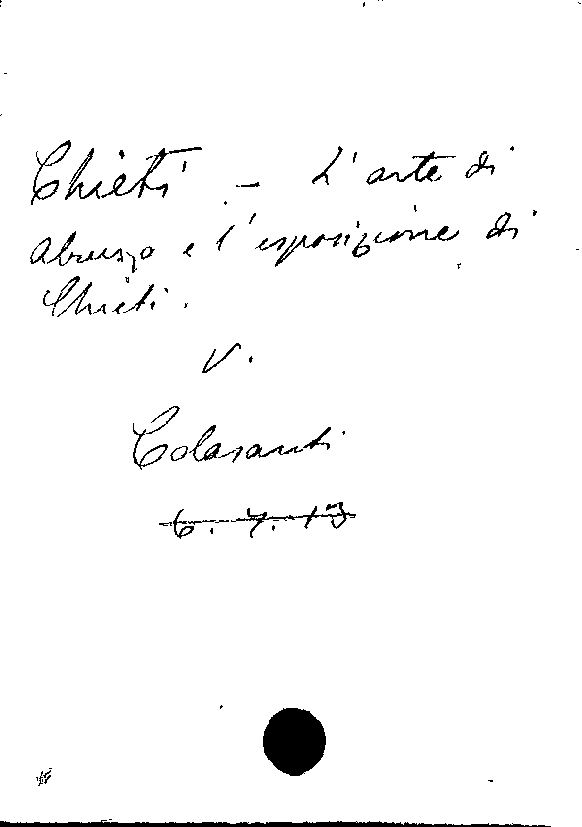 Chieti - L'arte di
Abruzzo e l'esposizione di
Chieti.
V.
Colasanti